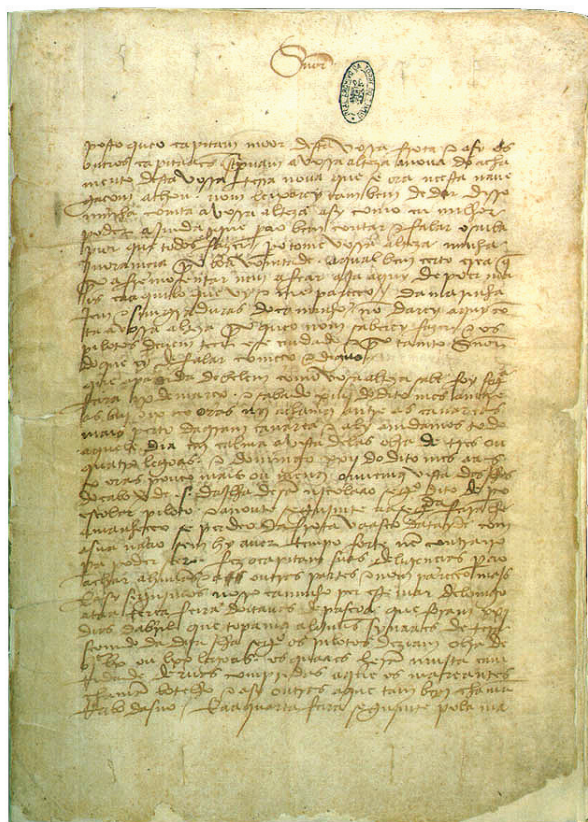 Snõr
posto queo capitam moor desta vossa frota e asy os
outros capitaães screpuam avossa alteza anoua do acha
mento desta vossa terra noua que se ora neesta naue
gaçam achou. nom leixarey tambem de dar disso
minha comta avossa alteza asy como eu milhor
poder ajmda que perao bem contar e falar o saiba
pior que todos fazer. pero tome vossa alteza minha
jnoramçia por boa vomtade. aqual bem çerto crea que
por afremosentar nem afear aja aquy de poer ma
is caaquilo que vy e me pareçeo / da marinha
jem e simgraduras do caminho nõ darey aquy cõ
ta avossa alteza por que o nom saberey fazer e os
pilotos deuem teer ese cuidado e por tanto Snõr
do que ey de falar começo e diguo
que apartida de belem como vosa alteza sabe foy segª
feira ix de março. e sabado xiiij do dito mes amtre
as biij e ix oras nos achamos antre as canareas
mais perto da gram canarea e aly amdamos todo
aquele dia em calma a vista delas obra de tres ou
quatro legoas. e domingo xxij do dito mes aas
x oras pouco mais ou menos ouuemos vista das jlhas
do cabo verde .s. da jlha de sã njcolaao segº dito de pº
escolar piloto. e anoute segujnte aa segª feira lhe
amanheceo se perdeo da frota vaasco datayde com
asua naao sem hy auer tempo forte nem contrairo
pera poder seer. fez ocapitam suas deligençias perao
achar ahuũas e a outras partes e nom pareçeo majs
E asy segujmos nosso caminho per este mar delomgo
ataa terça feira doitauas de pascoa que foram xxj
dias dabril que topamos alguũs synaaes de tera
seemdo da dita jlha segº os pilotos deziam obra de
bjᶜ lx ou lxx legoas. os quaaes herã mujta cam
tidade deruas compridas aque os mareantes
chamã botelho e asy outras aque tambem chamã
rrabo dasno / E aa quarta feira segujnte pola ma